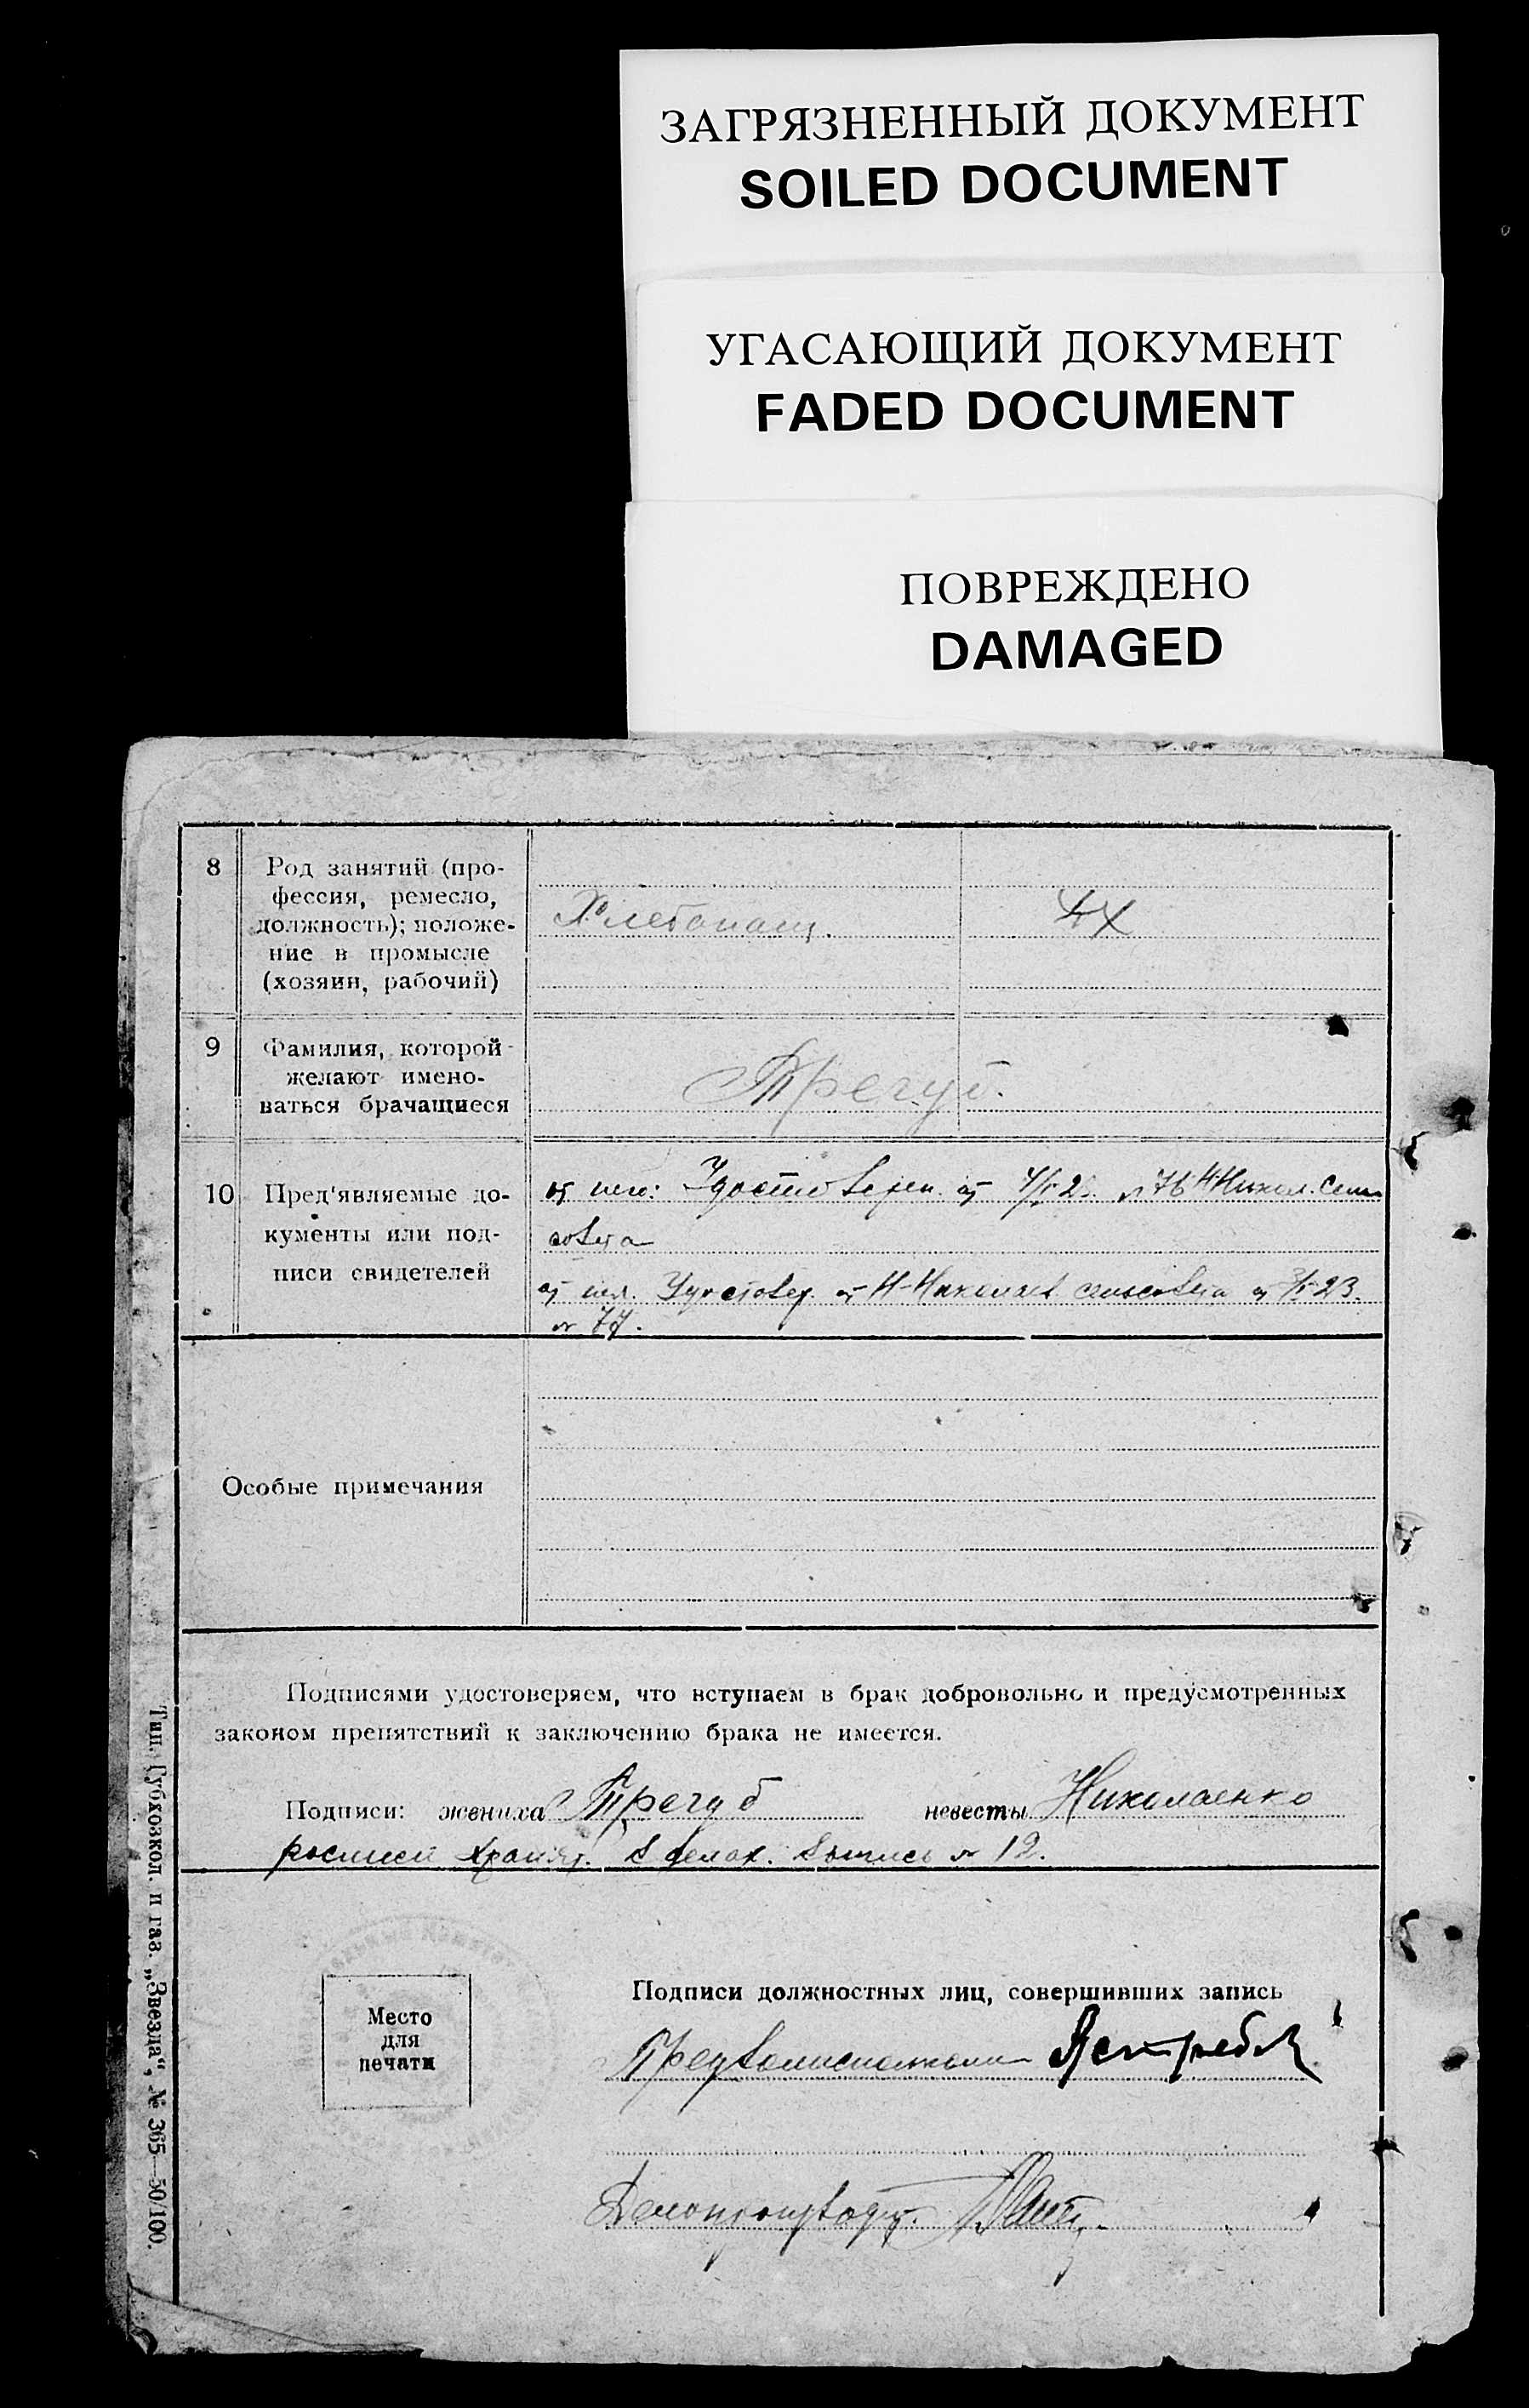 ЗАГРЯЗНЕННЫЙ ДОКУМЕНТ
SOILED DOCUMENT
УГАСАЮЩИЙ ДОКУМЕНТ
FADED DOCUMENT
ПОВРЕЖДЕНО
DAMAGED
8
Род занятий (про-
фессия, ремесло,
должность); положе-
ние в промысле
(хозяин, рабочий)
Хлебопаш.
9
Фамилия, которой
желают имено-
ваться брачащиеся
Трегуб.
10
Пред'являемые до-
кументы или под-
писи свидетелей
от него: Удостоверен. от № 76 Н Никол. Сель
совета
от нея. Удостовер. от Н-Николаев сельсовета от 23.
№ 77.
Особые примечания
Подписями удостоверяем, что вступаем в брак добровольно и предусмотренных
законом препятствий к заключению брака не имеется.
Подписи: жениха Трегуб невесты Николаенко
росписи хранят. в делах. выпись № 12.
Место
для
печати
Подписи должностных лиц, совершивших запись
Предволисполкома
Делопроизводит.
Тип. Губхозкол. п газ. „Звезда", № 365—50/100.